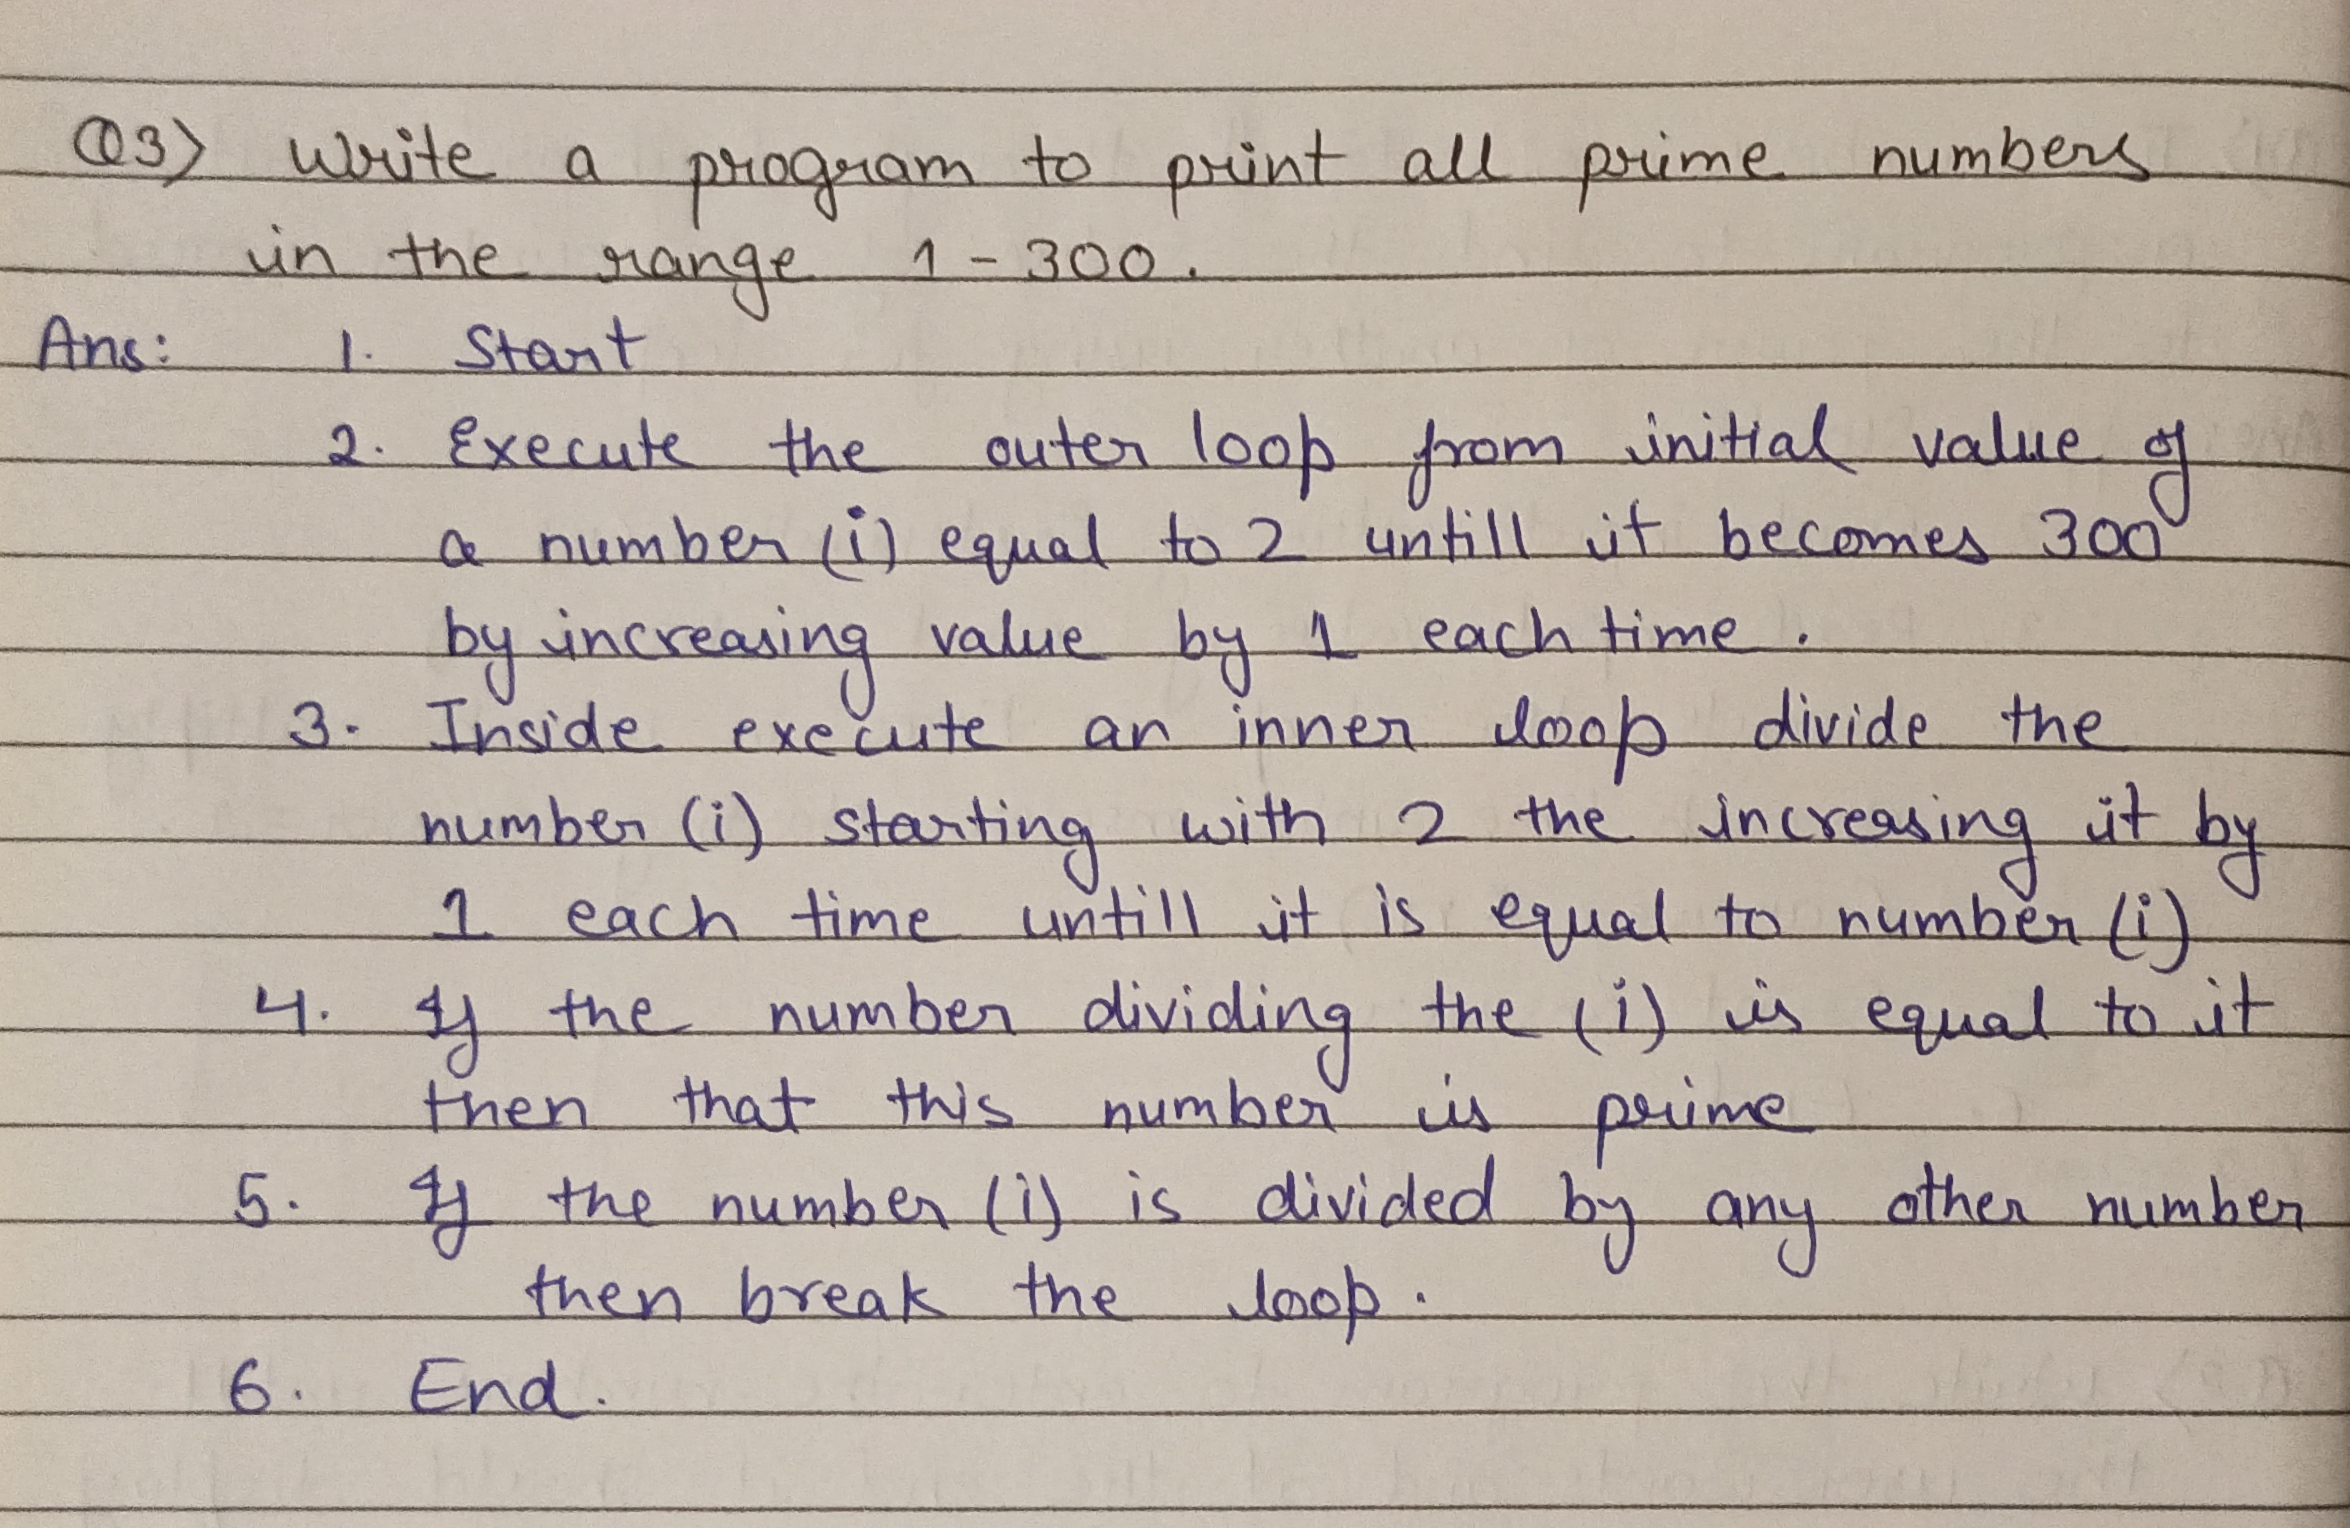 Q3) Write a program to print all prime numbers
in the range 1 - 300.
Ans: 1. Start
2. Execute the outer loop from initial value of
a number (i) equal to 2 untill it becomes 300
by increasing value by 1 each time.
3. Inside execute an inner loop divide the
number (i) starting with 2 the increasing it by
1 each time untill it is equal to number (i)
4. If the number dividing the (i) is equal to it
then that this number is prime
5. If the number (i) is divided by any other number
then break the loop.
6. End.